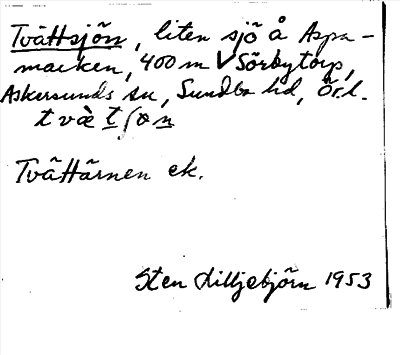 Tvättsjön, liten sjö å Aspa-
marken, 400 m V Sörbytorp,
Askersunds sn, Sundbo hd, Ör.l.
Tvättärnen ek.
Sten Lilljebjörn 1953